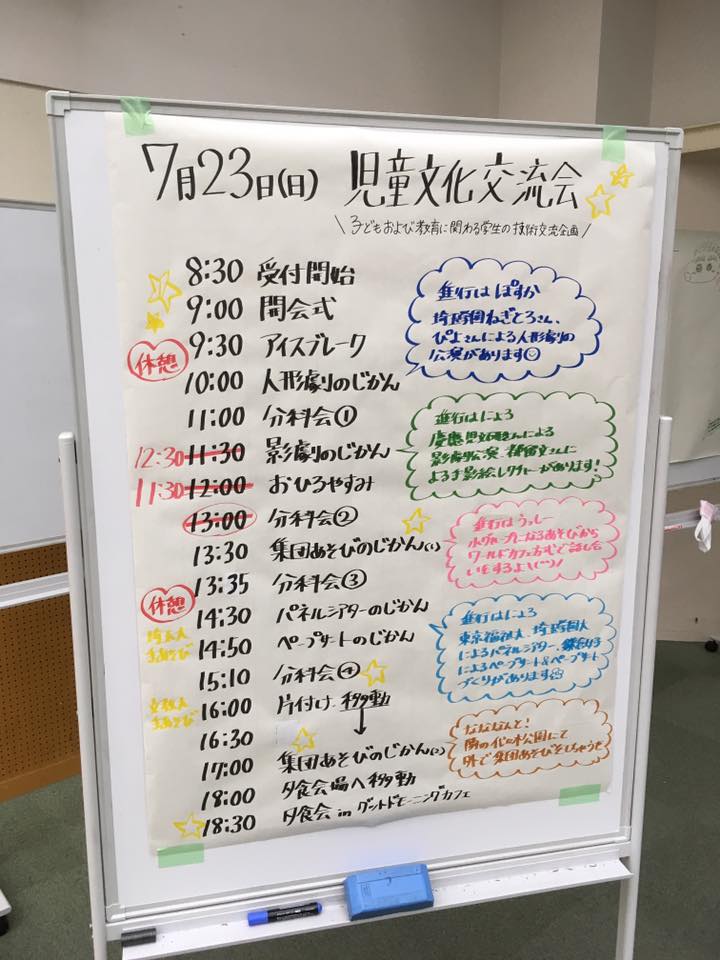 7月23日(日) 児童文化交流会
\子どもおよび教育に関わる学生の技術交流企画/
8:30 受付開始
9:00 開会式
休憩
9:30 アイスブレーク
10:00 人形劇のじかん
11:00 分科会①
12:30 11:30 影劇のじかん
11:30 12:00 おひるやすみ
13:00 分科会②
13:30 集団あそびのじかん(1)
13:35 分科会③
休憩
14:30 パネルシアターのじかん
14:50 ペープサートのじかん
15:10 分科会④
16:00 片付け・移動
16:30
17:00 集団あそびのじかん(2)
18:00 夕食会場へ移動
18:30 夕食会 in グットドモーニングカフェ
進行は ぱすか
埼玉 ねぎとろさん、
ぴよさんによる人形劇の
公演があります
進行はにょろ
慶應児文研さんによる
影劇公演、都留文さんに
よる手影絵レクチャーがあります!
進行はうっしー
小グループになるあそびから
ワールドカフェ方式で話し合
いをするよ!
進行はにょろ
東京福祉大、埼玉
によるパネルシアター、鎌女
によるペープサート&ペープサート
づくりがあります
なななんと!
隣の代々木公園にて
外で集団あそびをしちゃうぞ
埼玉大
手あそび
文教大
手あそび